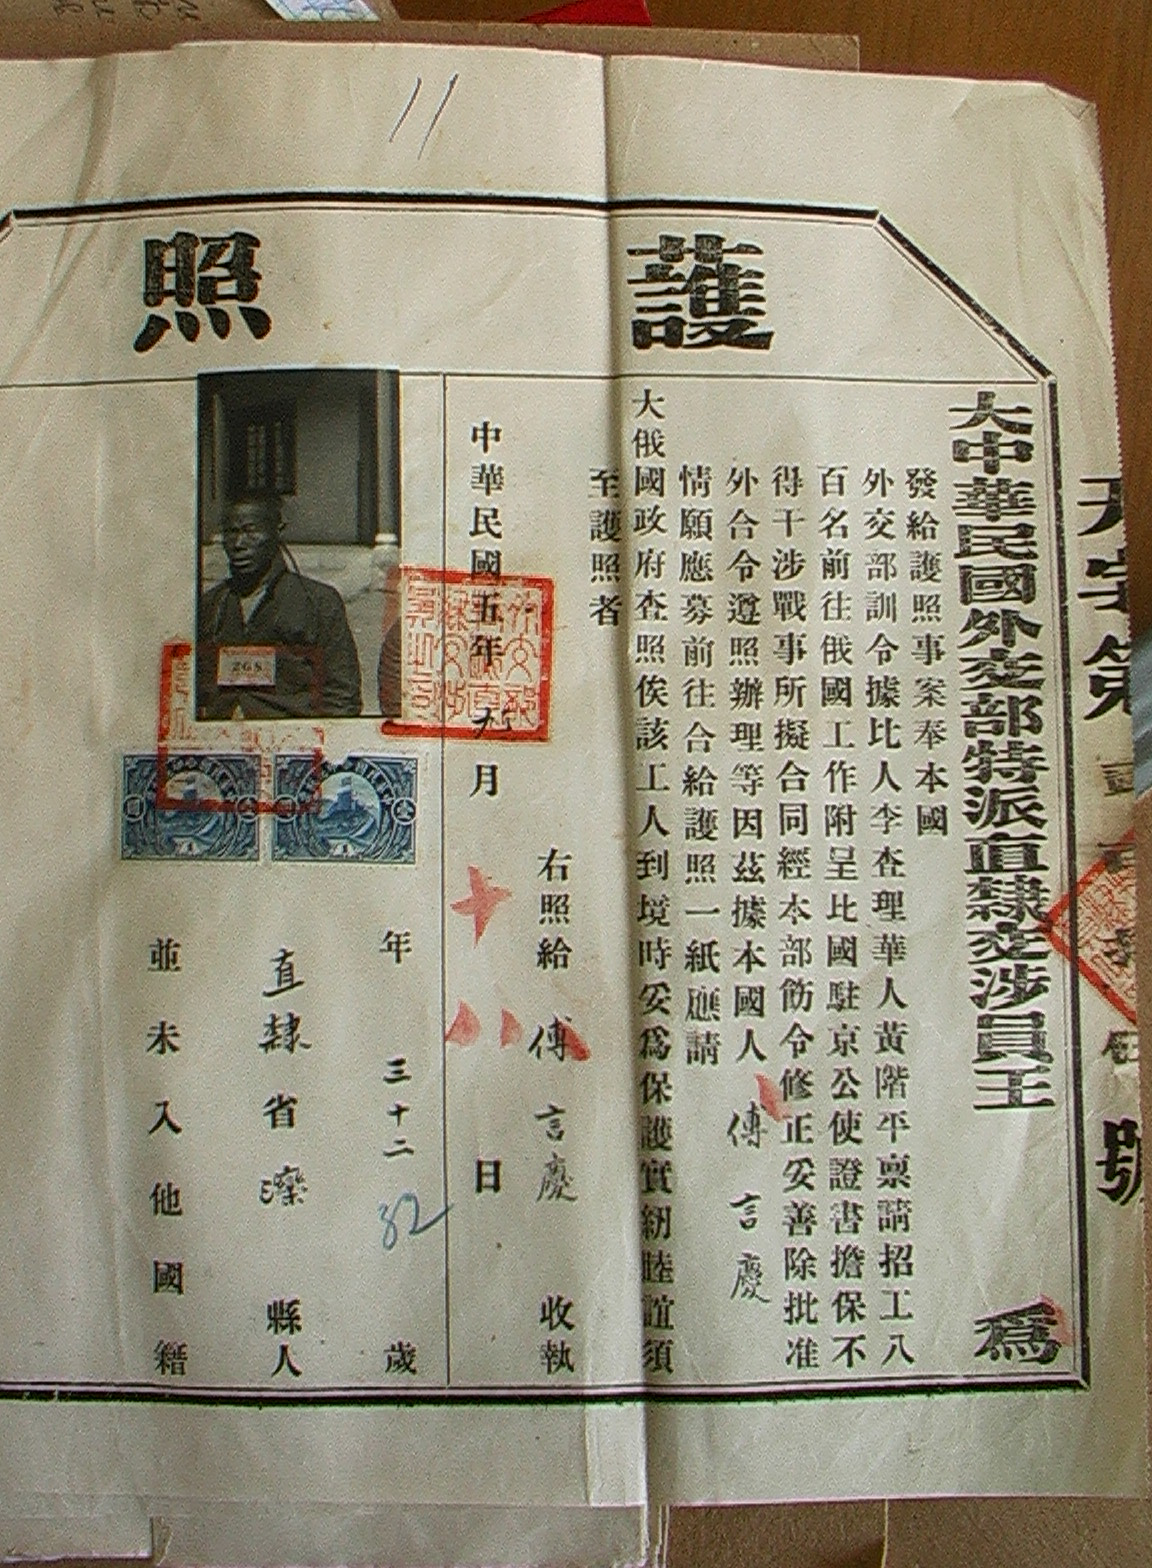 護照
大中華民國外交部特派直隸交涉員王
為
發給護照事案奉本國
外交部訓令據比人李查理華人黃階平稟請招工八
百名前往俄國工作附呈比國駐京公使證書擔保不
得干涉戰事所擬合同經本部飭令修正妥善除批准
外合令遵照辦理等因茲據本國人傅言慶
情願應募前往合給護照一紙應請
大俄國政府查照俟該工人到境時妥為保護實紉睦誼須
至護照者
右照給傅言慶收執
中華民國五年九月日
年三十二歲
82
直隸省灤縣人
並未入他國籍
268
11